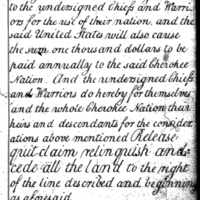 to the undersigned Chiefs and Warri-
ors for the use of their nation, and the
said United States will also cause
the sum one thousand dollars to be
paid annually to the said Cherokee
Nation. And the undersigned Chiefs
and Warriors do hereby for themselves
and the whole Cherokee Nation their
heirs and descendants for the consider-
ations above mentioned Release
quit claim, relinquish and
cede all the land to the right
of the line described and beginning
as aforesaid